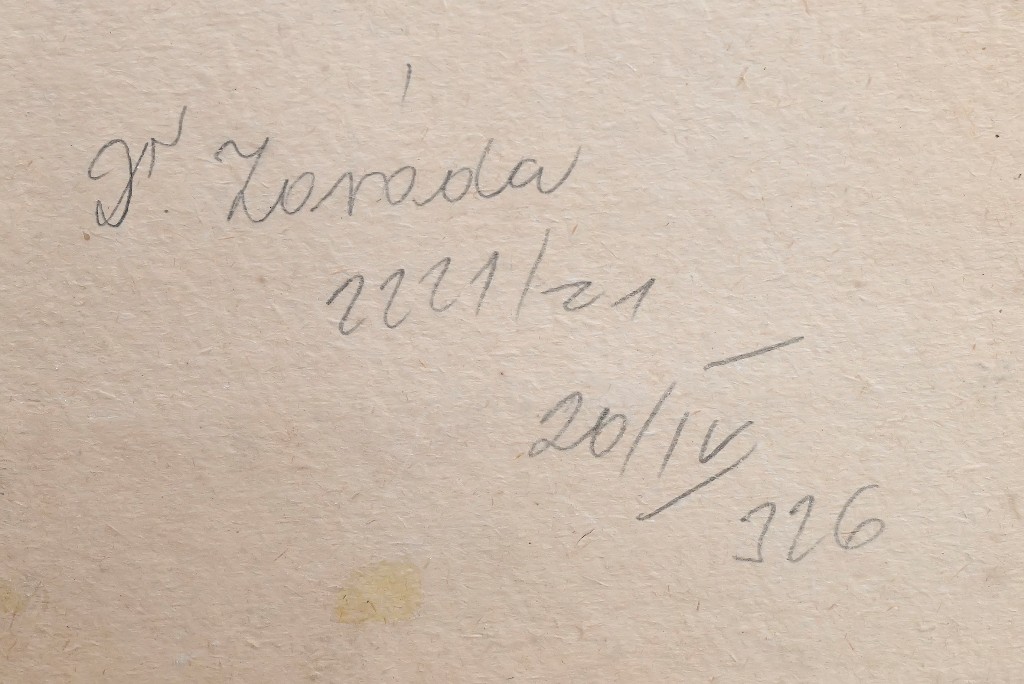 Dr Zoráda
2221/21
20/IV
326